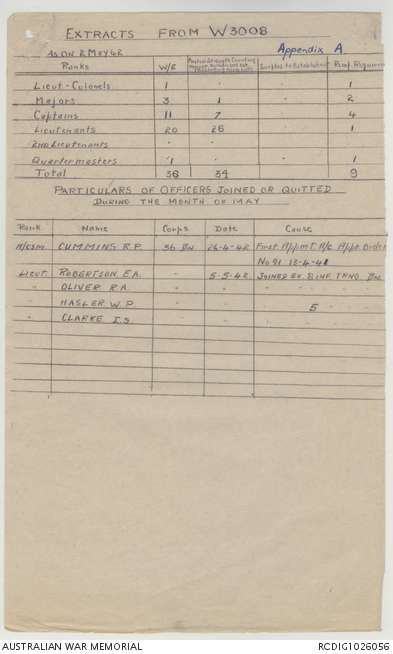 EXTRACTS FROM W3008
AS ON 2 MAY 42 Appendix A
Ranks W/E Surplus to Establishment Reinf. Required
Lieut-Colonels 1 . " 1
Majors 3 1 " 2
Captains 11 7 " 4
Lieutenants 20 26 " 1
2nd Lieutenants " . " .
Quartermasters 1 . " 1
Total 36 34 9
PARTICULARS OF OFFICERS JOINED OR QUITTED
DURING THE MONTH OF MAY
Rank Name Corps Date Cause
CUMMING R.P. 36 Bn 26-4-42 First Appmt. A/c Appt. Order
No 91 12-4-41
Lieut. ROBERTSON E.A. " 5-5-42 JOINED EX. INF. TRNG Bn
" OLIVER R.A. " " " " " "
" HASLER W.P. " " 5 " "
" CLARKE I.S. " " " " " "
AUSTRALIAN WAR MEMORIAL RCDIG1026056